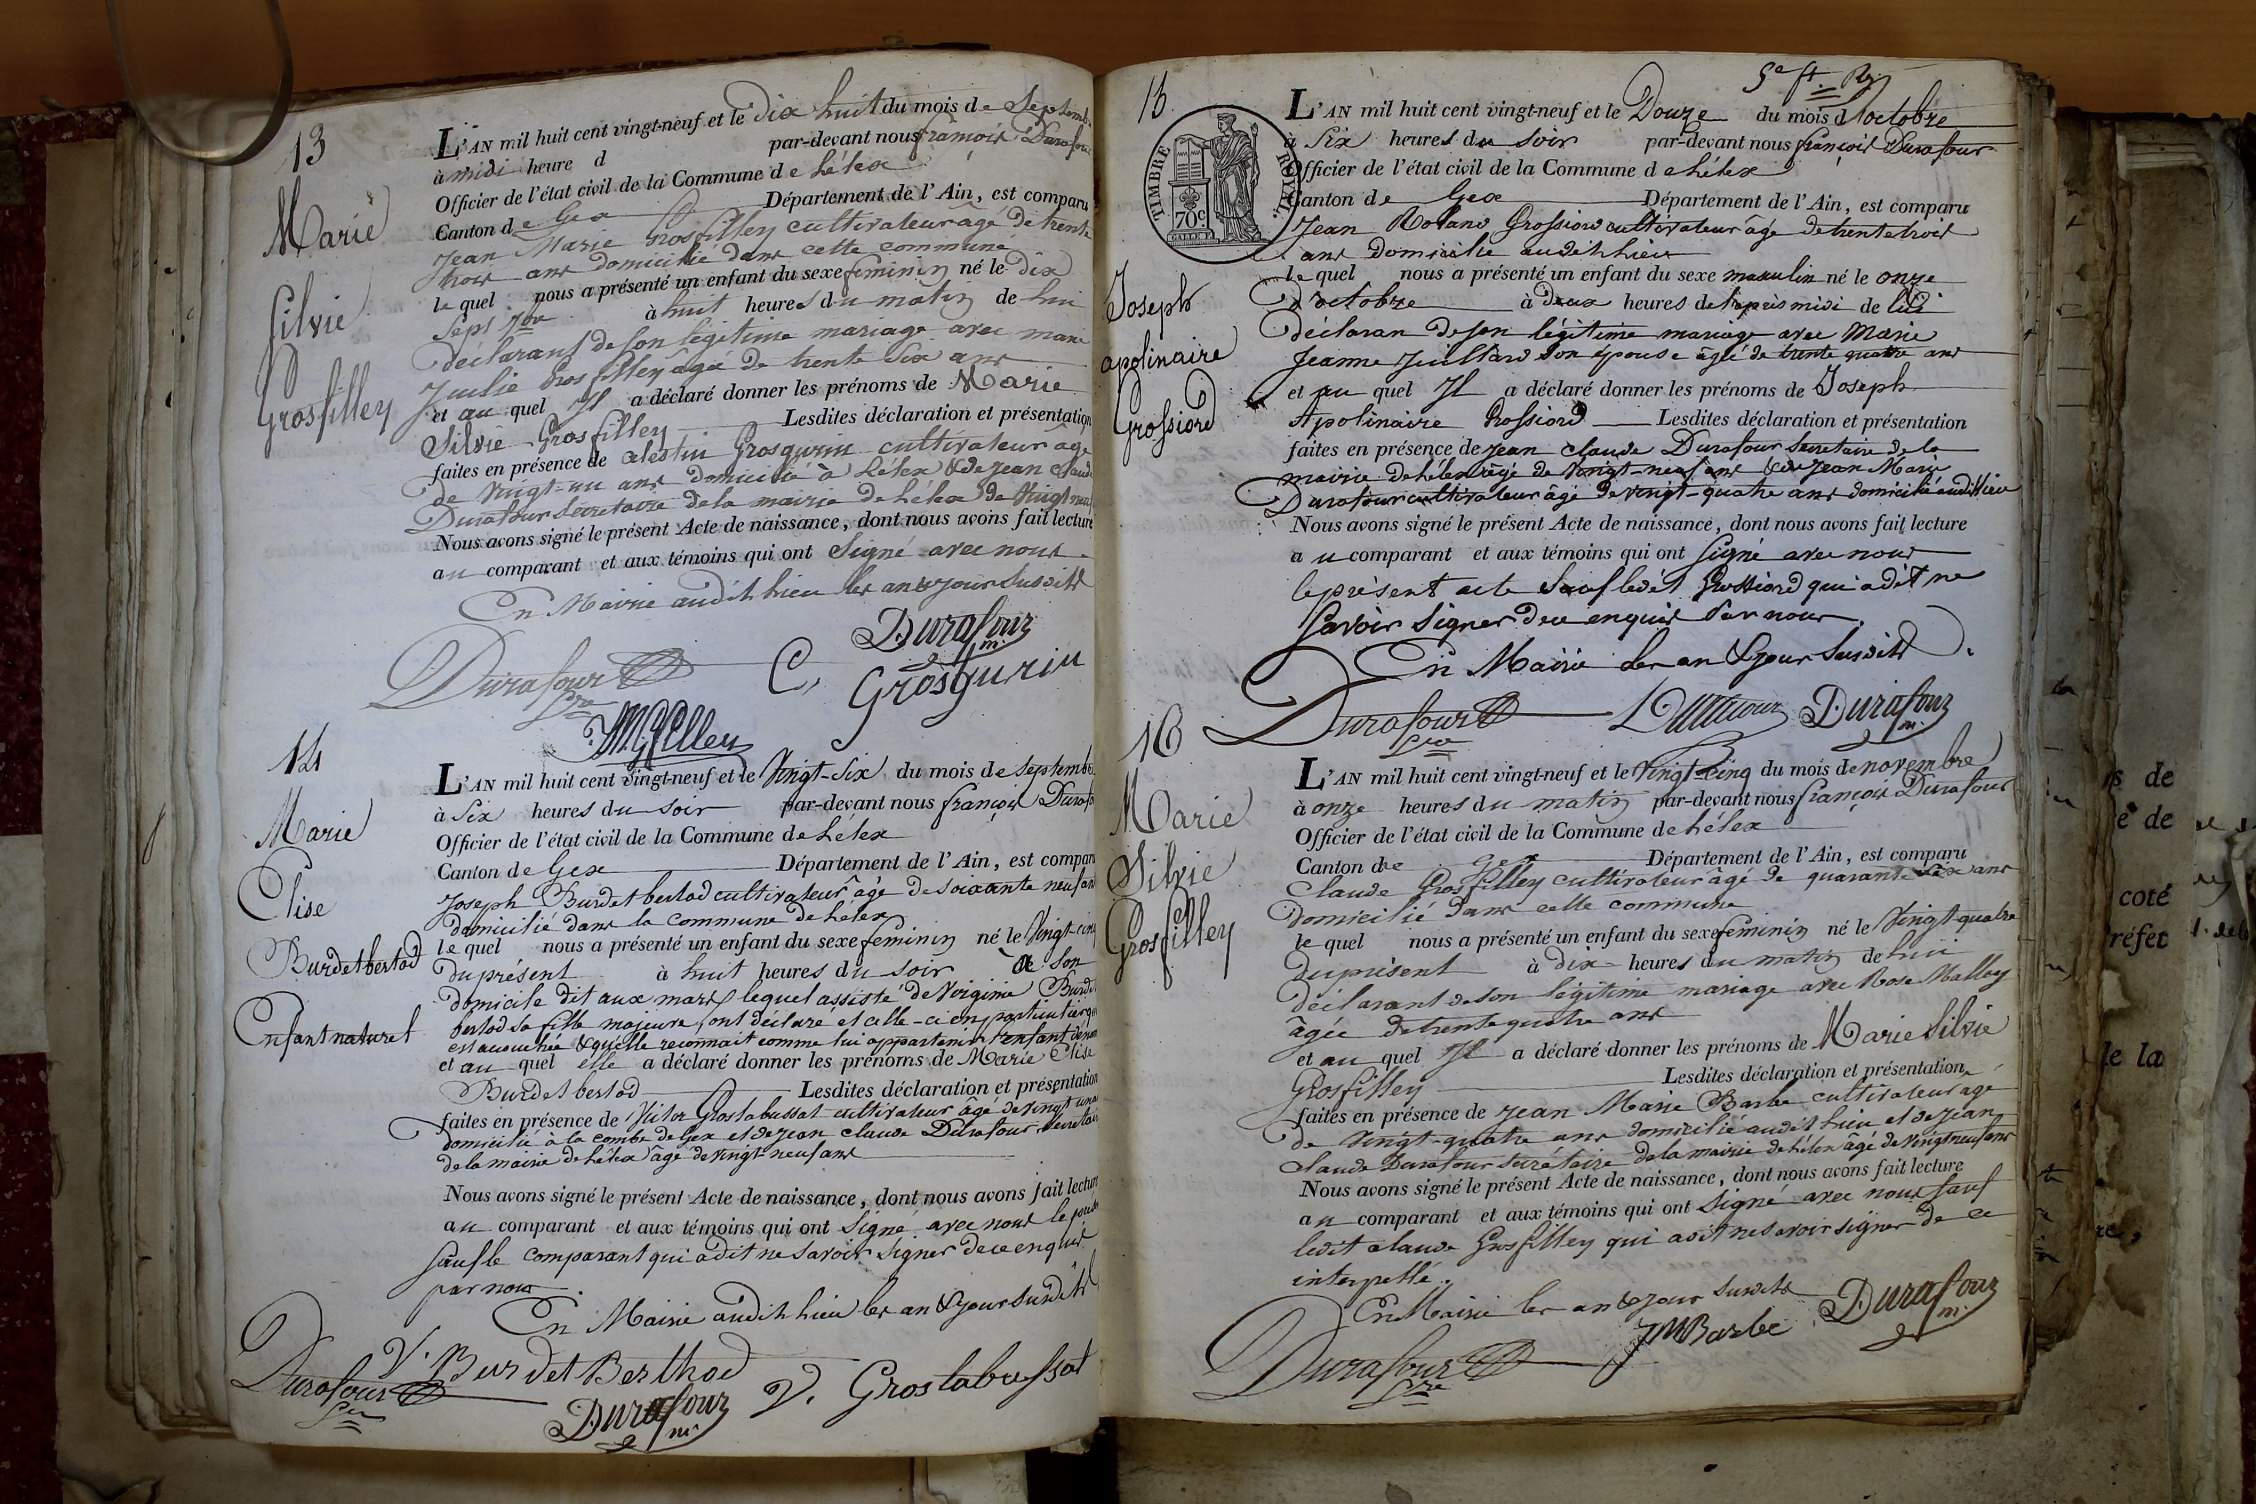 13
Marie
Silvie
Grosfilley
L'AN mil huit cent vingt-neuf et le Dix huit du mois de Septemb
à midi heure d par-devant nous françois Durafour
Officier de l'état civil de la Commune de Lélex
Canton de Gex Département de l'Ain, est comparu
Jean Marie Grosfilley cultivateur âgé de trente
trois ans domicilié dans cette commune
le quel nous a présenté un enfant du sexe feminin né le dix
Sept 7bre à huit heures du matin de lui
déclarant de son légitime mariage avec marie
Julie Grosfilley âgée de trente Six ans
et au quel Il a déclaré donner les prénoms de Marie
Silvie Grosfilley Lesdites déclaration et présentation
faites en présence de Célestin Grosgurin cultivateur âgé
de Vingt-un ans domicilié à Lélex & de Jean Claude
Durafour Secretaire de la mairie de Lélex de Vingt neuf
Nous avons signé le présent Acte de naissance, dont nous avons fait lecture
au comparant et aux témoins qui ont Signé avec nous
En Mairie audit lieu les an & jour Susdits
Durafour
m.
Durafour
Sre
C, Grosgurin
JMGfilley
14
Marie
Elise
Burdetbertod
Enfant naturel
L'AN mil huit cent vingt-neuf et le Vingt-Six du mois de Septembre
à Six heures du soir par-devant nous françois Durafo
Officier de l'état civil de la Commune de Lélex
Canton de Gex Département de l'Ain, est compar
Joseph Burdetbertod cultivateur âgé de soixante neuf ans
domicilié dans la commune de Lélex
le quel nous a présenté un enfant du sexe feminin né le Vingt-cinq
du présent à huit heures du soir de son
domicile dit aux mars lequel assisté de Virginie Burdet
bertod sa fille majeure, ont déclaré et celle-ci en particulier qu
est accouchée & qu'elle reconnait comme lui appartenir l'enfant
et au quel elle a déclaré donner les prénoms de Marie Elise
Burdetbertod Lesdites déclaration et présentation
faites en présence de Victor Groslabussat cultivateur âgé de vingt un
domicilié à la combe de Gex et de Jean claude Durafour Secretaire
de la mairie de Lélex âgé de vingt-neuf ans
Nous avons signé le présent Acte de naissance, dont nous avons fait lecture
au comparant et aux témoins qui ont Signé avec nous le
Sauf le comparant qui a dit ne savoir Signer de ce enquis
par nous.
En Mairie audit lieu les an & jour susdits
V. Burdet Berthod
Durafour
Sre
Durafour
m.
V. Groslabussat
15
TIMBRE ROYAL.
70c.
Joseph
apolinaire
Grossiord
L'AN mil huit cent vingt-neuf et le Douze du mois d'octobre
à Six heures du soir par-devant nous françois Durafour
Officier de l'état civil de la Commune de Lélex
Canton de Gex Département de l'Ain, est comparu
Jean Roland Grossiord cultivateur âgé de trente trois
ans Domicilié audit lieu
le quel nous a présenté un enfant du sexe masculin né le onze
D'octobre à deux heures de l'après midi de lui
déclaran de son légitime mariage avec Marie
Jeanne Juilliard son épouse âgée de trente quatre ans
et au quel Il a déclaré donner les prénoms de Joseph
Apolinaire Grossiord Lesdites déclaration et présentation
faites en présence de Jean claude Durafour Secretaire de la
mairie de Lélex âgé de Vingt-neuf ans & de Jean Marie
Durafour cultivateur âgé de vingt-quatre ans domicilié audit lieu
Nous avons signé le présent Acte de naissance, dont nous avons fait lecture
au comparant et aux témoins qui ont Signé avec nous
le présent acte Sauf ledit Grossiord qui a dit ne
Savoir Signer de ce enquis Par nous.
En Mairie les an & jour Susdits.
Durafour
Sre
Durafour
m.
16
Marie
Silvie
Grosfilley
L'AN mil huit cent vingt-neuf et le Vingt-cinq du mois de novembre
à onze heures du matin par-devant nous françois Durafour
Officier de l'état civil de la Commune de Lélex
Canton de Gex Département de l'Ain, est comparu
Claude Grosfilley cultivateur âgé de quarante Six ans
Domicilié dans cette commune
le quel nous a présenté un enfant du sexe feminin né le Vingt-quatre
du présent à dix heures du matin de lui
déclarant de son légitime mariage avec Rose Mallay
âgée de trente quatre ans
et au quel Il a déclaré donner les prénoms de Marie Silvie
Grosfilley Lesdites déclaration et présentation
faites en présence de Jean Marie Barbe cultivateur agé
de Vingt-quatre ans domicilié audit lieu et de Jean
Claude Durafour secrétaire de la mairie de Lélex âgé de Vingt neuf ans
Nous avons signé le présent Acte de naissance, dont nous avons fait lecture
au comparant et aux témoins qui ont Signé avec nous Sauf
ledit claude Grosfilley qui a dit ne savoir signer de ce
interpellé.
En Mairie les an & jour susdits
Durafour
m.
JMBarbe
Durafour
Sre
s de
e de
coté
réfet
le la